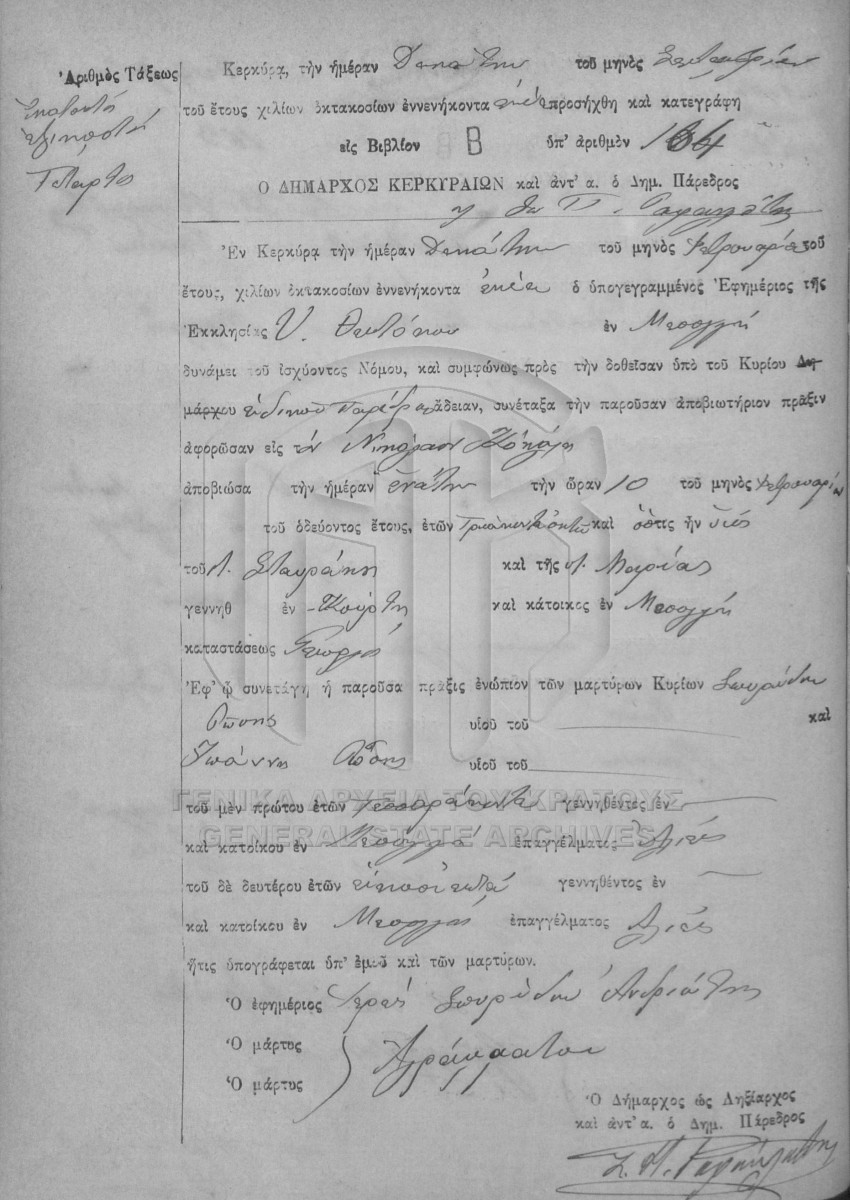 Ἀριθμὸς Τάξεως
Ἑκατοστή
ἑξηκοστή
Τετάρτη
Κερκύρα, τὴν ἡμέραν Δεκάτην τοῦ μηνὸς
τοῦ ἔτους χιλίων ὀκτακοσίων ἐννενήκοντα ἐννέα προσήχθη καὶ κατεγράφη
εἰς Βιβλίον Β ὑπ' ἀριθμὸν 164
Ὁ ΔΗΜΑΡΧΟΣ ΚΕΡΚΥΡΑΙΩΝ καὶ ἀντ' α. ὁ Δημ. Πάρεδρος
Ἐν Κερκύρᾳ τὴν ἡμέραν Δεκάτην τοῦ μηνὸς Φεβρουαρίου τοῦ
ἔτους, χιλίων ὀκτακοσίων ἐννενήκοντα ἐννέα ὁ ὑπογεγραμμένος Ἐφημέριος τῆς
Ἐκκλησίας Υ. Θεοτόκου ἐν Μεσογγῇ
δυνάμει τοῦ ἰσχύοντος Νόμου, καὶ συμφώνως πρὸς τὴν δοθεῖσαν ὑπὸ τοῦ Κυρίου Δη-
μάρχου εἰδικοῦ Παρέδρου ἄδειαν, συνέταξα τὴν παροῦσαν ἀποβιωτήριον πρᾶξιν
ἀφορῶσαν εἰς τὸν Νικόλαον
ἀποβιώσα τὴν ἡμέραν ἐνάτην τὴν ὥραν 10 τοῦ μηνὸς Φεβρουαρίου
τοῦ ὁδεύοντος ἔτους, ἐτῶν Τριάκοντα ὀκτὼ καὶ ὅστις ἦν υἱὸς
τοῦ Λ. Σταυράκη καὶ τῆς Λ. Μαρίας
γεννηθ ἐν καὶ κάτοικος ἐν Μεσογγῇ
καταστάσεως Γεωργός
Ἐφ' ᾧ συνετάγη ἡ παροῦσα πρᾶξις ἐνώπιον τῶν μαρτύρων Κυρίων Σπυρίδων
υἱοῦ τοῦ καὶ
Ἰωάννης υἱοῦ τοῦ
τοῦ μὲν πρώτου ἐτῶν Τεσσαράκοντα γεννηθέντος ἐν
καὶ κατοίκου ἐν Μεσογγῇ ἐπαγγέλματος Ἁλιεύς
τοῦ δὲ δευτέρου ἐτῶν εἴκοσι ἑπτά γεννηθέντος ἐν
καὶ κατοίκου ἐν Μεσογγῆς ἐπαγγέλματος Ἁλιεύς
ἥτις ὑπογράφεται ὑπ' ἐμοῦ καὶ τῶν μαρτύρων.
Ὁ ἐφημέριος Ἱερεὺς Σπυρίδων Ἀνδριώτης
Ὁ μάρτυς
Ἀγράμματοι
Ὁ μάρτυς
Ὁ Δήμαρχος ὡς Ληξίαρχος
καὶ ἀντ' α. ὁ Δημ. Πάρεδρος
ΓΕΝΙΚΑ ΑΡΧΕΙΑ ΤΟΥ ΚΡΑΤΟΥΣ
GENERAL STATE ARCHIVES